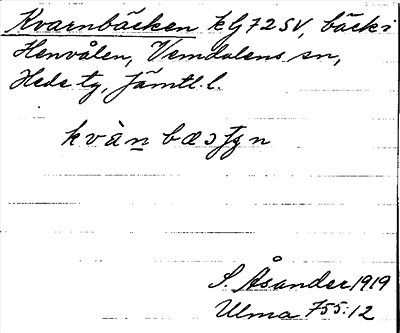 Kvarnbäcken kG72SV, bäck i
Henvålen, Vemdalens sn,
Hede tg, Jämtl. l.
S. Åsander 1919
Ulma 755:12